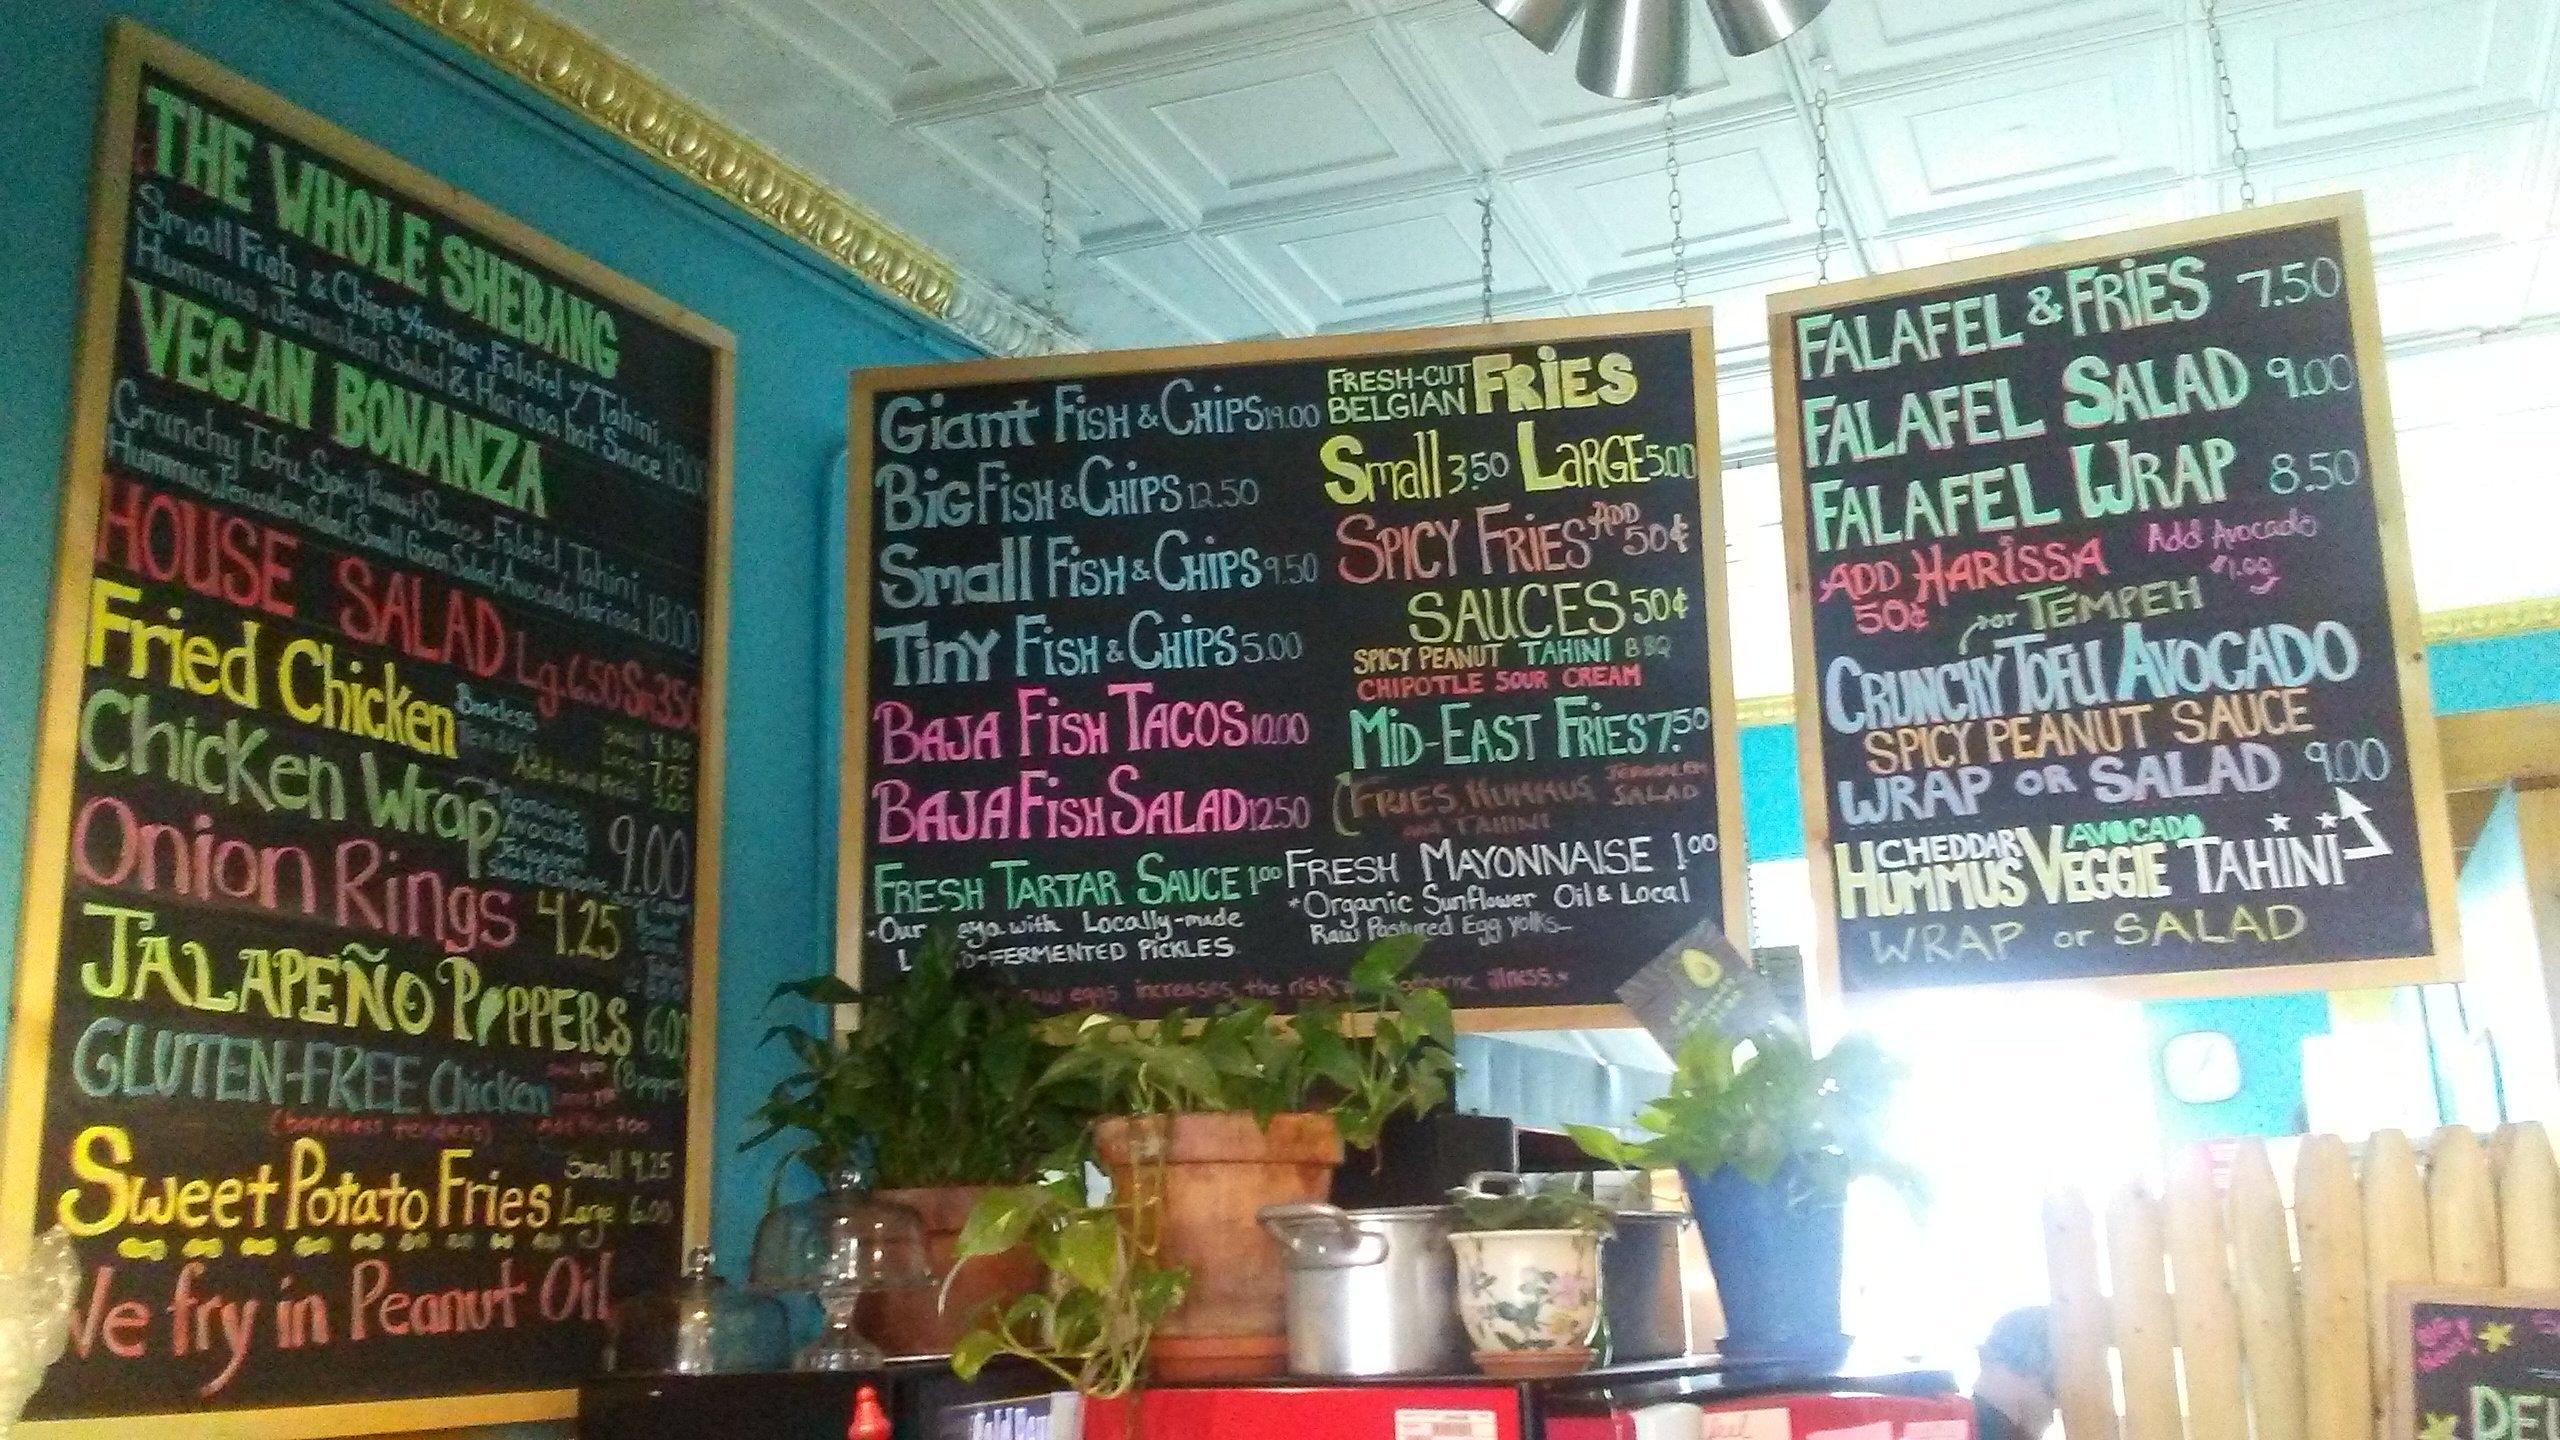 THE WHOLE SHEBANG
Small Fish & Chips w/tartar, Falafel w/Tahini
Hummus, Jerusalem Salad & Harissa hot Sauce 18.00
VEGAN BONANZA
Crunchy Tofu, Spicy Peanut Sauce, Falafel, Tahini
Hummus, Jerusalem Salad, Small Green Salad, Avocado, Harissa 18.00
HOUSE SALAD Lg. 6.50 Sm 3.50
Fried Chicken Boneless Tenders
Small 4.50
Large 7.75
Add small fries 3.00
Chicken Wrap Romaine
Avocado
Jerusalem
Salad & Chipotle
Sour Cream
9.00
Onion Rings 4.25
JALAPEÑO POPPERS 6.00
GLUTEN-FREE Chicken
(boneless tenders)
Sweet Potato Fries Small 4.25
Large 6.00
We fry in Peanut Oil
Giant FISH & CHIPS 19.00
BIG FISH & CHIPS 12.50
Small FISH & CHIPS 9.50
TINY FISH & CHIPS 5.00
BAJA FISH TACOS 10.00
BAJA FISH SALAD 12.50
FRESH TARTAR SAUCE 1.00
Our with Locally-made
-FERMENTED PICKLES
FRESH-CUT
BELGIAN FRIES
Small 3.50 LARGE 5.00
SPICY FRIES ADD 50¢
SAUCES 50¢
SPICY PEANUT TAHINI BBQ
CHIPOTLE SOUR CREAM
MID-EAST FRIES 7.50
FRIES, HUMMUS, JERUSALEM SALAD
and TAHINI
FRESH MAYONNAISE 1.00
*Organic Sunflower Oil & Local
Raw Pastured Egg Yolks...
raw eggs increases the risk illness.*
FALAFEL & FRIES 7.50
FALAFEL SALAD 9.00
FALAFEL WRAP 8.50
ADD HARISSA 50¢
Add Avocado $1.00
or TEMPEH
CRUNCHY TOFU AVOCADO
SPICY PEANUT SAUCE
WRAP OR SALAD 9.00
CHEDDAR AVOCADO
HUMMUS VEGGIE TAHINI
WRAP or SALAD